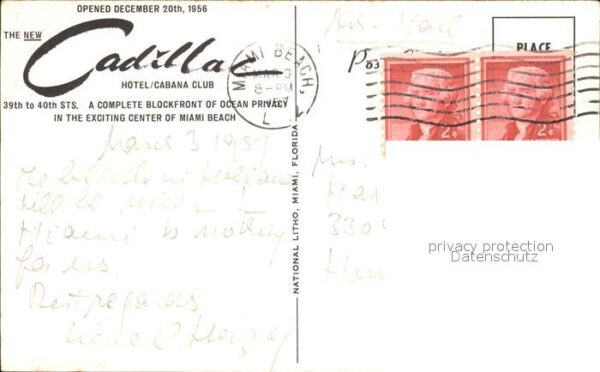 OPENED DECEMBER 20th, 1956
THE NEW
Cadillac
HOTEL/CABANA CLUB
39th to 40th STS. A COMPLETE BLOCKFRONT OF OCEAN PRIVACY
IN THE EXCITING CENTER OF MIAMI BEACH
MIAMI BEACH
MAR 3
8-PM
1957
Air-Mail
PLACE
2¢ 2¢
NATIONAL LITHO, MIAMI, FLORIDA
March 3 1957
The beach in Holland
will be nicer!
Miami is nothing
for us.
Best regards
Mrs.
330
privacy protection
Datenschutz